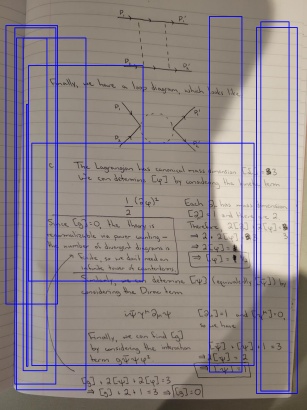 P₁ P₁'
P₂ P₂'
Finally, we have a loop diagram, which looks like
P₁ P₁'
P₂ P₂'
c. The Lagrangian has canonical mass dimension [L] = 3
We can determine [φ] by considering the kinetic term
½ (∂φ)²
Each ∂ has mass dimension
[∂] = 1 and there are 2
Therefore,
Since [g]=0, the theory is
renormalizable via power counting -
the number of divergent diagrams is
finite, so we don't need an
infinite tower of counterterms.
Similarly, we can determine [ψ] (equivalently [ψ̄]) by
considering the Dirac term
[∂μ]=1 and [γ^μ]=0,
so we have
[ψ] + [ψ̄] + 1 = 3
⇒ 2[ψ] = 2
⇒ [ψ] = 1
Finally, we can find [g]
by considering the interaction
term gψ̄ψφ²
[g] + 2[ψ] + 2[φ] = 3
⇒ [g] + 2 + 1 = 3 ⇒ [g] = 0